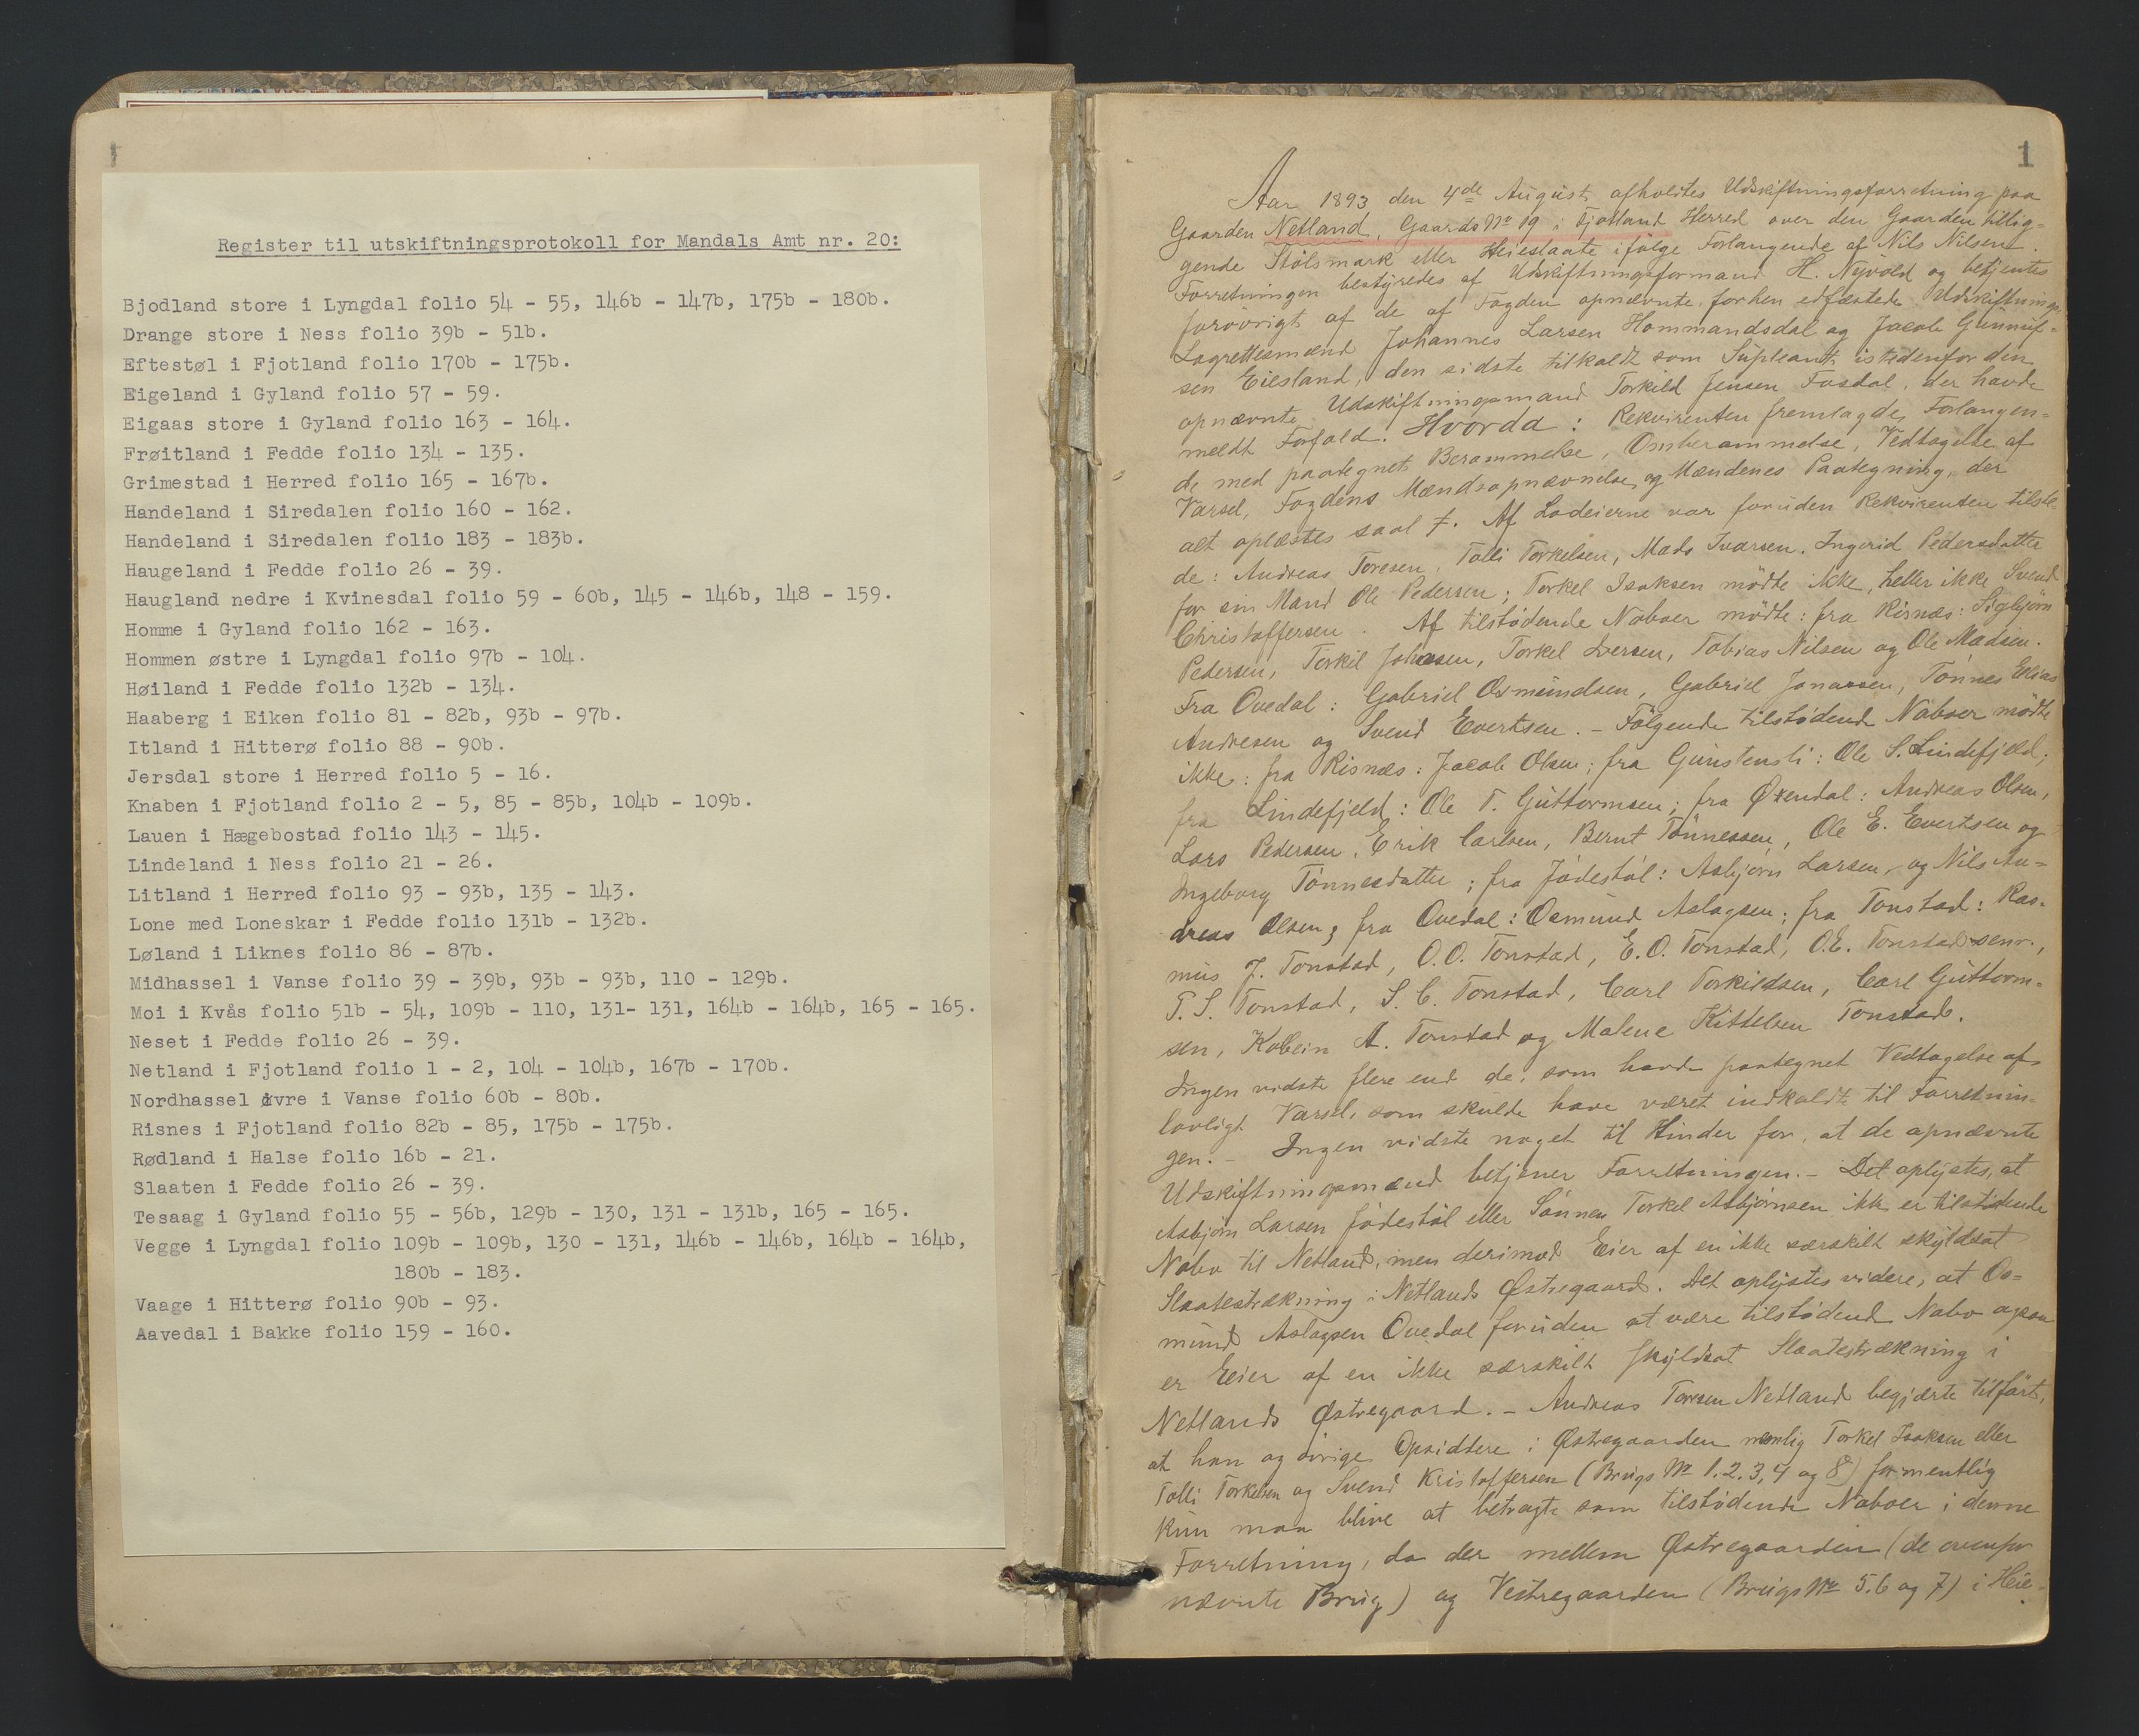 Register til utskiftningsprotokoll for Mandals Amt nr. 20:
Bjodland store i Lyngdal folio 54 - 55, 146b - 147b, 175b - 180b.
Drange store i Ness folio 39b - 51b.
Eftestøl i Fjotland folio 170b - 175b.
Eigeland i Gyland folio 57 - 59.
Eigaas store i Gyland folio 163 - 164.
Frøitland i Fedde folio 134 - 135.
Grimestad i Herred folio 165 - 167b.
Handeland i Siredalen folio 160 - 162.
Handeland i Siredalen folio 183 - 183b.
Haugeland i Fedde folio 26 - 39.
Haugland nedre i Kvinesdal folio 59 - 60b, 145 - 146b, 148 - 159.
Homme i Gyland folio 162 - 163.
Hommen østre i Lyngdal folio 97b - 104.
Høiland i Fedde folio 132b - 134.
Haaberg i Eiken folio 81 - 82b, 93b - 97b.
Itland i Hitterø folio 88 - 90b.
Jersdal store i Herred folio 5 - 16.
Knaben i Fjotland folio 2 - 5, 85 - 85b, 104b - 109b.
Lauen i Hægebostad folio 143 - 145.
Lindeland i Ness folio 21 - 26.
Litland i Herred folio 93 - 93b, 135 - 143.
Lone med Loneskar i Fedde folio 131b - 132b.
Løland i Liknes folio 86 - 87b.
Midhassel i Vanse folio 39 - 39b, 93b - 93b, 110 - 129b.
Moi i Kvås folio 51b - 54, 109b - 110, 131- 131, 164b - 164b, 165 - 165.
Neset i Fedde folio 26 - 39.
Netland i Fjotland folio 1 - 2, 104 - 104b, 167b - 170b.
Nordhassel øvre i Vanse folio 60b - 80b.
Risnes i Fjotland folio 82b - 85, 175b - 175b.
Rødland i Halse folio 16b - 21.
Slaaten i Fedde folio 26 - 39.
Tesaag i Gyland folio 55 - 56b, 129b - 130, 131 - 131b, 165 - 165.
Vegge i Lyngdal folio 109b - 109b, 130 - 131, 146b - 146b, 164b - 164b,
180b - 183.
Vaage i Hitterø folio 90b - 93.
Aavedal i Bakke folio 159 - 160.
1
Aar 1893 den 4de August afholdtes Udskiftningsforretning paa
Gaarden Netland, Gaards No 19 i Fjotland Herred over den Gaarden tillig-
gende Stølsmark eller Heieslaate ifølge Forlangende af Nils Nilsen.
Forretningen bestyredes af Udskiftningsformand H. Nyvold og betjentes
forøvrigt af de af Fogden opnævnte forhen edfæstede Udskiftnings-
Lagrettesmænd Johannes Larsen Hommandsdal og Jacob Gunnuf-
sen Eiesland, den sidste tilkaldt som Supleant istedenfor den
opnævnte Udskiftningsmand Torkild Jensen Fosdal, der havde
meldt Forfald. Hvorda: Rekvirenten fremlagde Forlangen-
de med paategnet Berammelse, Omberammelse, Vedtagelse af
Varsel, Fogdens Mændsopnævnelse og Mændenes Paategning, der
alt oplæstes saal. Af Lodeierne var foruden Rekvirenten tilste-
de: Andreas Toresen, Tolli Torkelsen, Mads Ivarsen, Ingerid Pedersdatter
for sin Mand Ole Pedersen; Torkel Isaksen mødte ikke, heller ikke Svend
Christoffersen. Af tilstødende Naboer mødte: fra Risnæs: Sigbjørn
Pedersen, Torkil Johnsen, Torkel Iversen, Tobias Nilsen og Ole Madsen.
Fra Ovedal: Gabriel Osmundsen, Gabriel Jonassen, Tønnes Elias
Andresen og Svend Evertsen. - Følgende tilstødende Naboer mødte
ikke: fra Risnæs: Jacob Olsen; fra Gunstensli: Ole S. Lindefjeld;
fra Lindefjeld: Ole T. Guttormsen; fra Øxendal: Andreas Olsen,
Lars Pedersen, Erik Carlsen, Bernt Tønnessen, Ole E. Evertsen og
Ingeborg Tønnesdatter; fra Jødestøl: Asbjørn Larsen, og Nils An-
dreas Olsen; fra Ovedal: Osmund Aslagsen; fra Tonstad: Ras-
mus J. Tonstad, O.O. Tonstad, E.O. Tonstad, O.E. Tonstad senr.,
T.S. Tonstad, S.C. Tonstad, Carl Torkildsen, Carl Guttorm-
sen, Kolbein A. Tonstad og Malene Kittelsen Tonstad.
Ingen vidste flere end de, som havde paategnet Vedtagelse af
lovligt Varsel, som skulde have været indkaldt til Forretnin-
gen. - Ingen vidste noget til Hinder for, at de opnævnte
Udskiftningsmænd betjener Forretningen. - Det oplystes, at
Asbjørn Larsen Jødestøl eller Sønnen Torkel Asbjørnsen ikke er tilstødende
Nabo til Netland, men derimod Eier af en ikke særskilt skyldsat
Slaatestrækning i Netlands Østregaard. Det oplystes videre, at Os-
mund Aslagsen Ovedal foruden at være tilstødende Nabo ogsaa
er Eier af en ikke særskilt skyldsat Slaatestrækning i
Netlands Østregaard. - Andreas Toresen Netland begjærte tilført,
at han og øvrige Opsiddere i Østregaarden nemlig Torkel Isaksen eller
Tolli Torkelsen og Svend Kristoffersen (Brugs No 1.2.3,4 og 8) formentlig
kun maa blive at betragte som tilstødende Naboer i denne
Forretning, da der mellem Østregaarden (de ovenfor
nævnte Brug) og Vestregaarden (Brugs No 5.6 og 7) i Heie-